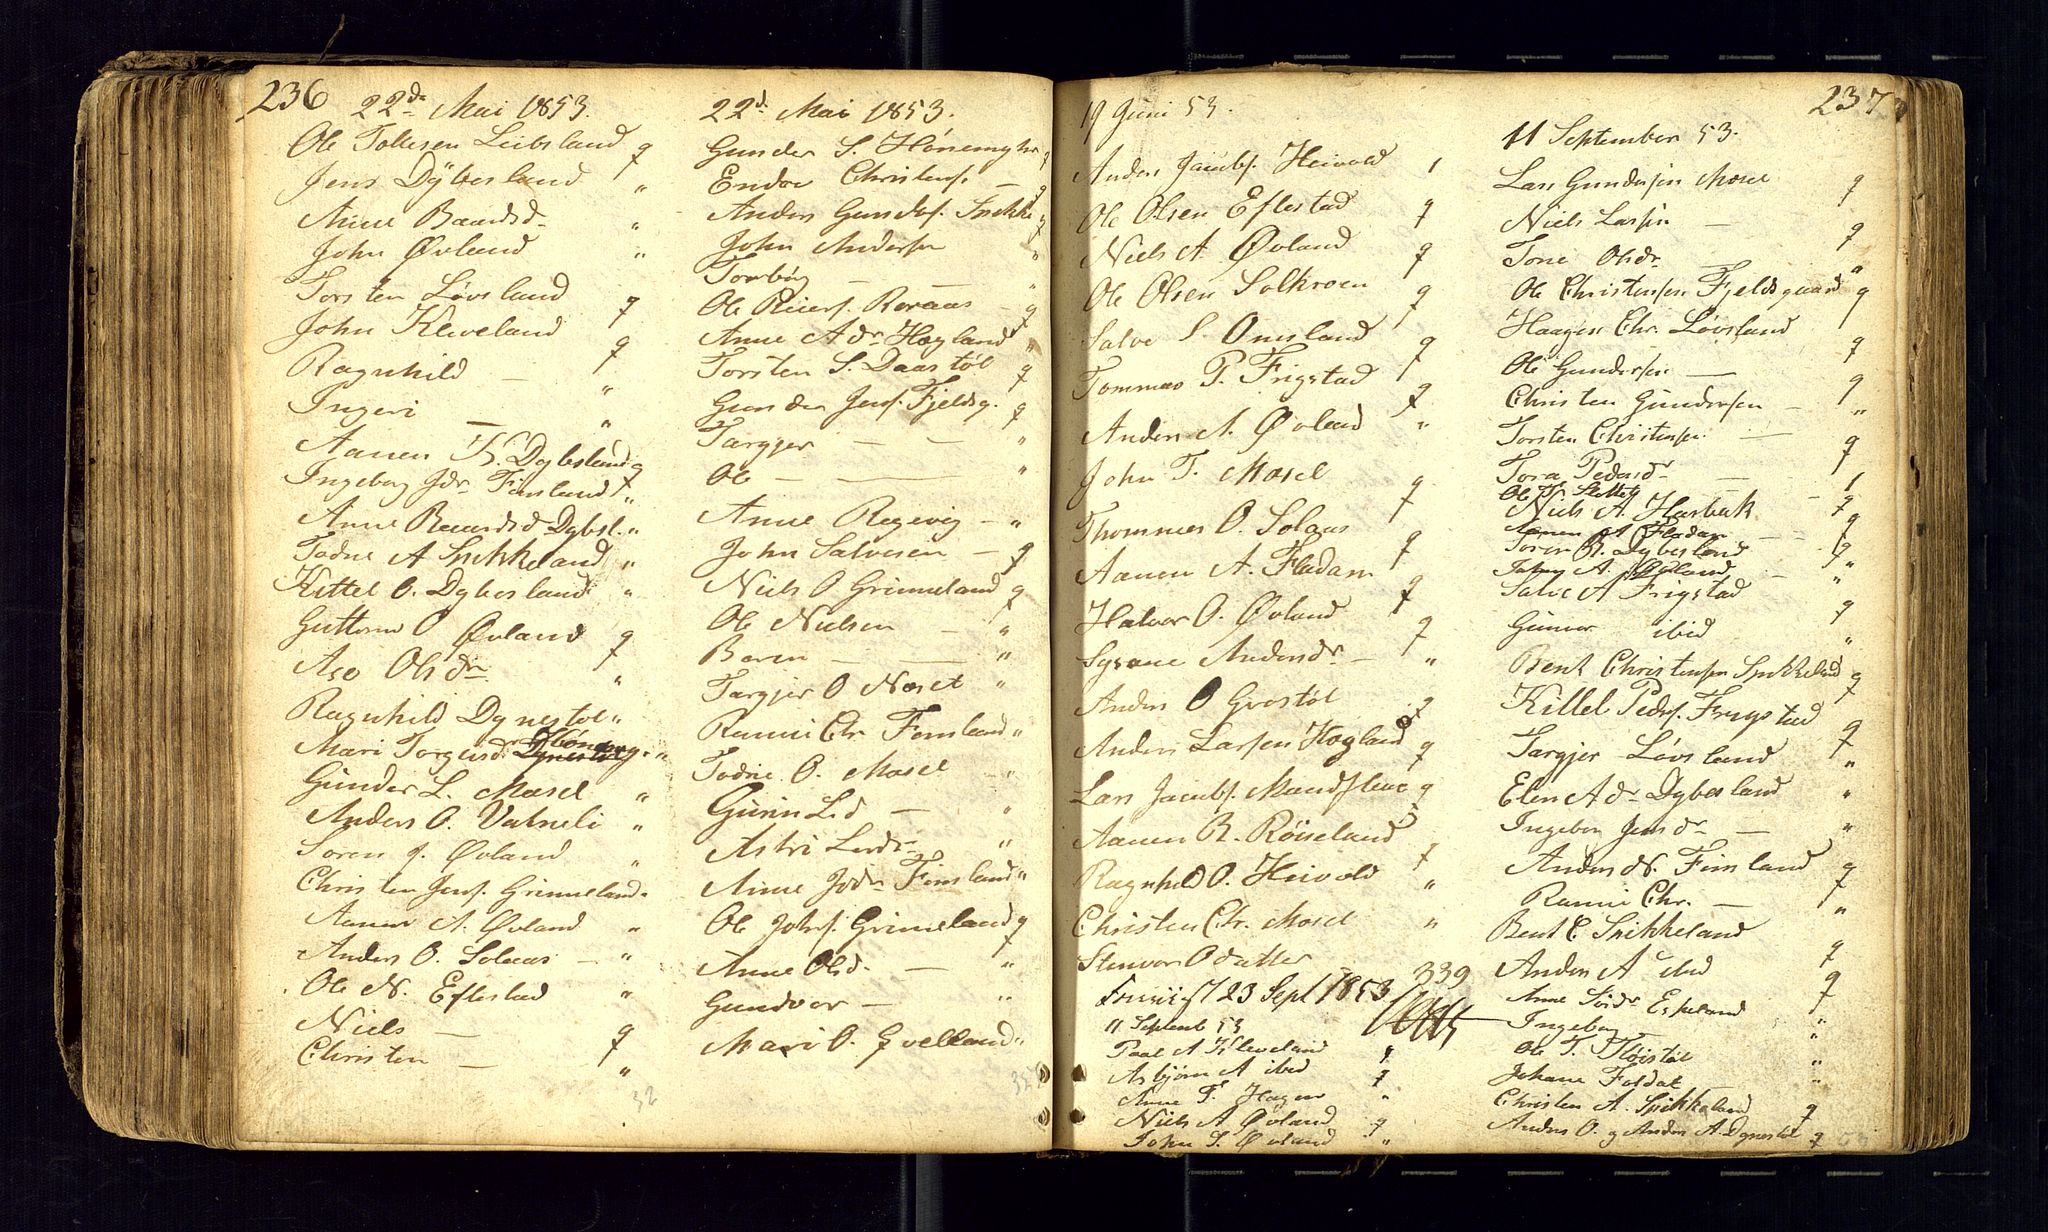 236
22d. Mai 1853.
Ole Tollesen Leibsland q
Jens Dybesland "
Anne Baardsd. "
John Øvland "
Torsten Løvsland q
John Kleveland q
Ragnhild — "
Ingeri — "
Aanen K. Dybesland q
Ingeborg Jdr. Finsland "
Anne Baardsd Dybsl. "
Todne A Spikkeland "
Kittel O. Dybesland "
Guttorm O Øvland q
Ase Olsdr. "
Ragnhild Dynestøl "
Mari Torgusdr Hønemyr "
Gunder L. Mosel "
Anders O. Vatneli "
Soren J. Øvland "
Christen Jens. Grimeland "
Aanen A. Øvland "
Anders O. Solaas — "
Ole N. Eftestad "
Niels — q
Christen — "
32
22d. Mai 1853.
Gunder S. Hønemyhr q
Endre Christens. — q
Anders Gunders. Spikke q
John Andersen "
Torborg — "
Ole Reiers. Roraas — q
Anne A dr. Høgland "
Torsten S. Daastøl q
Gunder Jens. Fjeldsg. q
Targjer — — "
Ole — — "
Anne Regevig — "
John Salvesen — q
Niels O Grimeland q
Ole Nielsen — "
Baren — "
Targjer O Noset "
Ranni Chr. Finsland "
Todne O. Mosel "
Gurin Lid — "
Astri Lardr. "
Anne Jodr. Finsland "
Ole Johs. Grimeland q
Anne Olsd. — "
Gundvor — "
Mari O. Qvelland "
19 Juni 53.
Anders Jacobs. Heivold 1
Ole Olsen Eftestad q
Niels A Øvland q
Ole Olsen Solkroen q
Salve S. Omsland q
Tommas P. Frigstad q
Anders A. Øvland "
John T. Mosel q
Thommes O. Solaas q
Aanen A. Fladam q
Halvor O. Øvland q
Syvane Andersdr — "
Anders O Grostøl q
Anders Larsen Høgland q
Lars Jacobs. q
Aanen R. Røiseland q
Ragnhild O. Heivold "
Christen Chr. Mosel "
Stenvor Odatter
339
23 Sept 1853
11 Septemb 53
Paal A Kleveland q
Asbjørn A ibid q
Anne T. Hagen "
Niels A Øvland q
John T. Øvland "
237
11 September 53.
Lars Gundersen Mosel q
Niels Larsen — q
Tone Olsdr. "
Ole Christensen Fjeldsgaard q
Haagen Chr. Løvsland q
Ole Gundersen — q
Christen Gundersen — "
Torsten Christensen — q
Tora Pedersdr — 1
Ole Sletten — q
Niels A. Harbak q
Aanen A Fladam — q
Soren R. Dybesland q
A. Øvland — "
Salve A Frigstad q
Gunvor ibid "
Bent Christensen Spikkeland q
Kittel Peders. Frigstad q
Targjer Løvsland "
Elen A dr. Dybesland "
Ingeborg Jensdr. — "
Anders N. Finsland q
Ranni Chr. — "
Bent C. Spikkeland q
Anders A ibid q
Anne Espeland "
Ingeborg — "
Ole T. Høistøl "
Johane Foldal — "
Christen A. Spikkeland q
Anders O. og Anders A. Dynestøl q